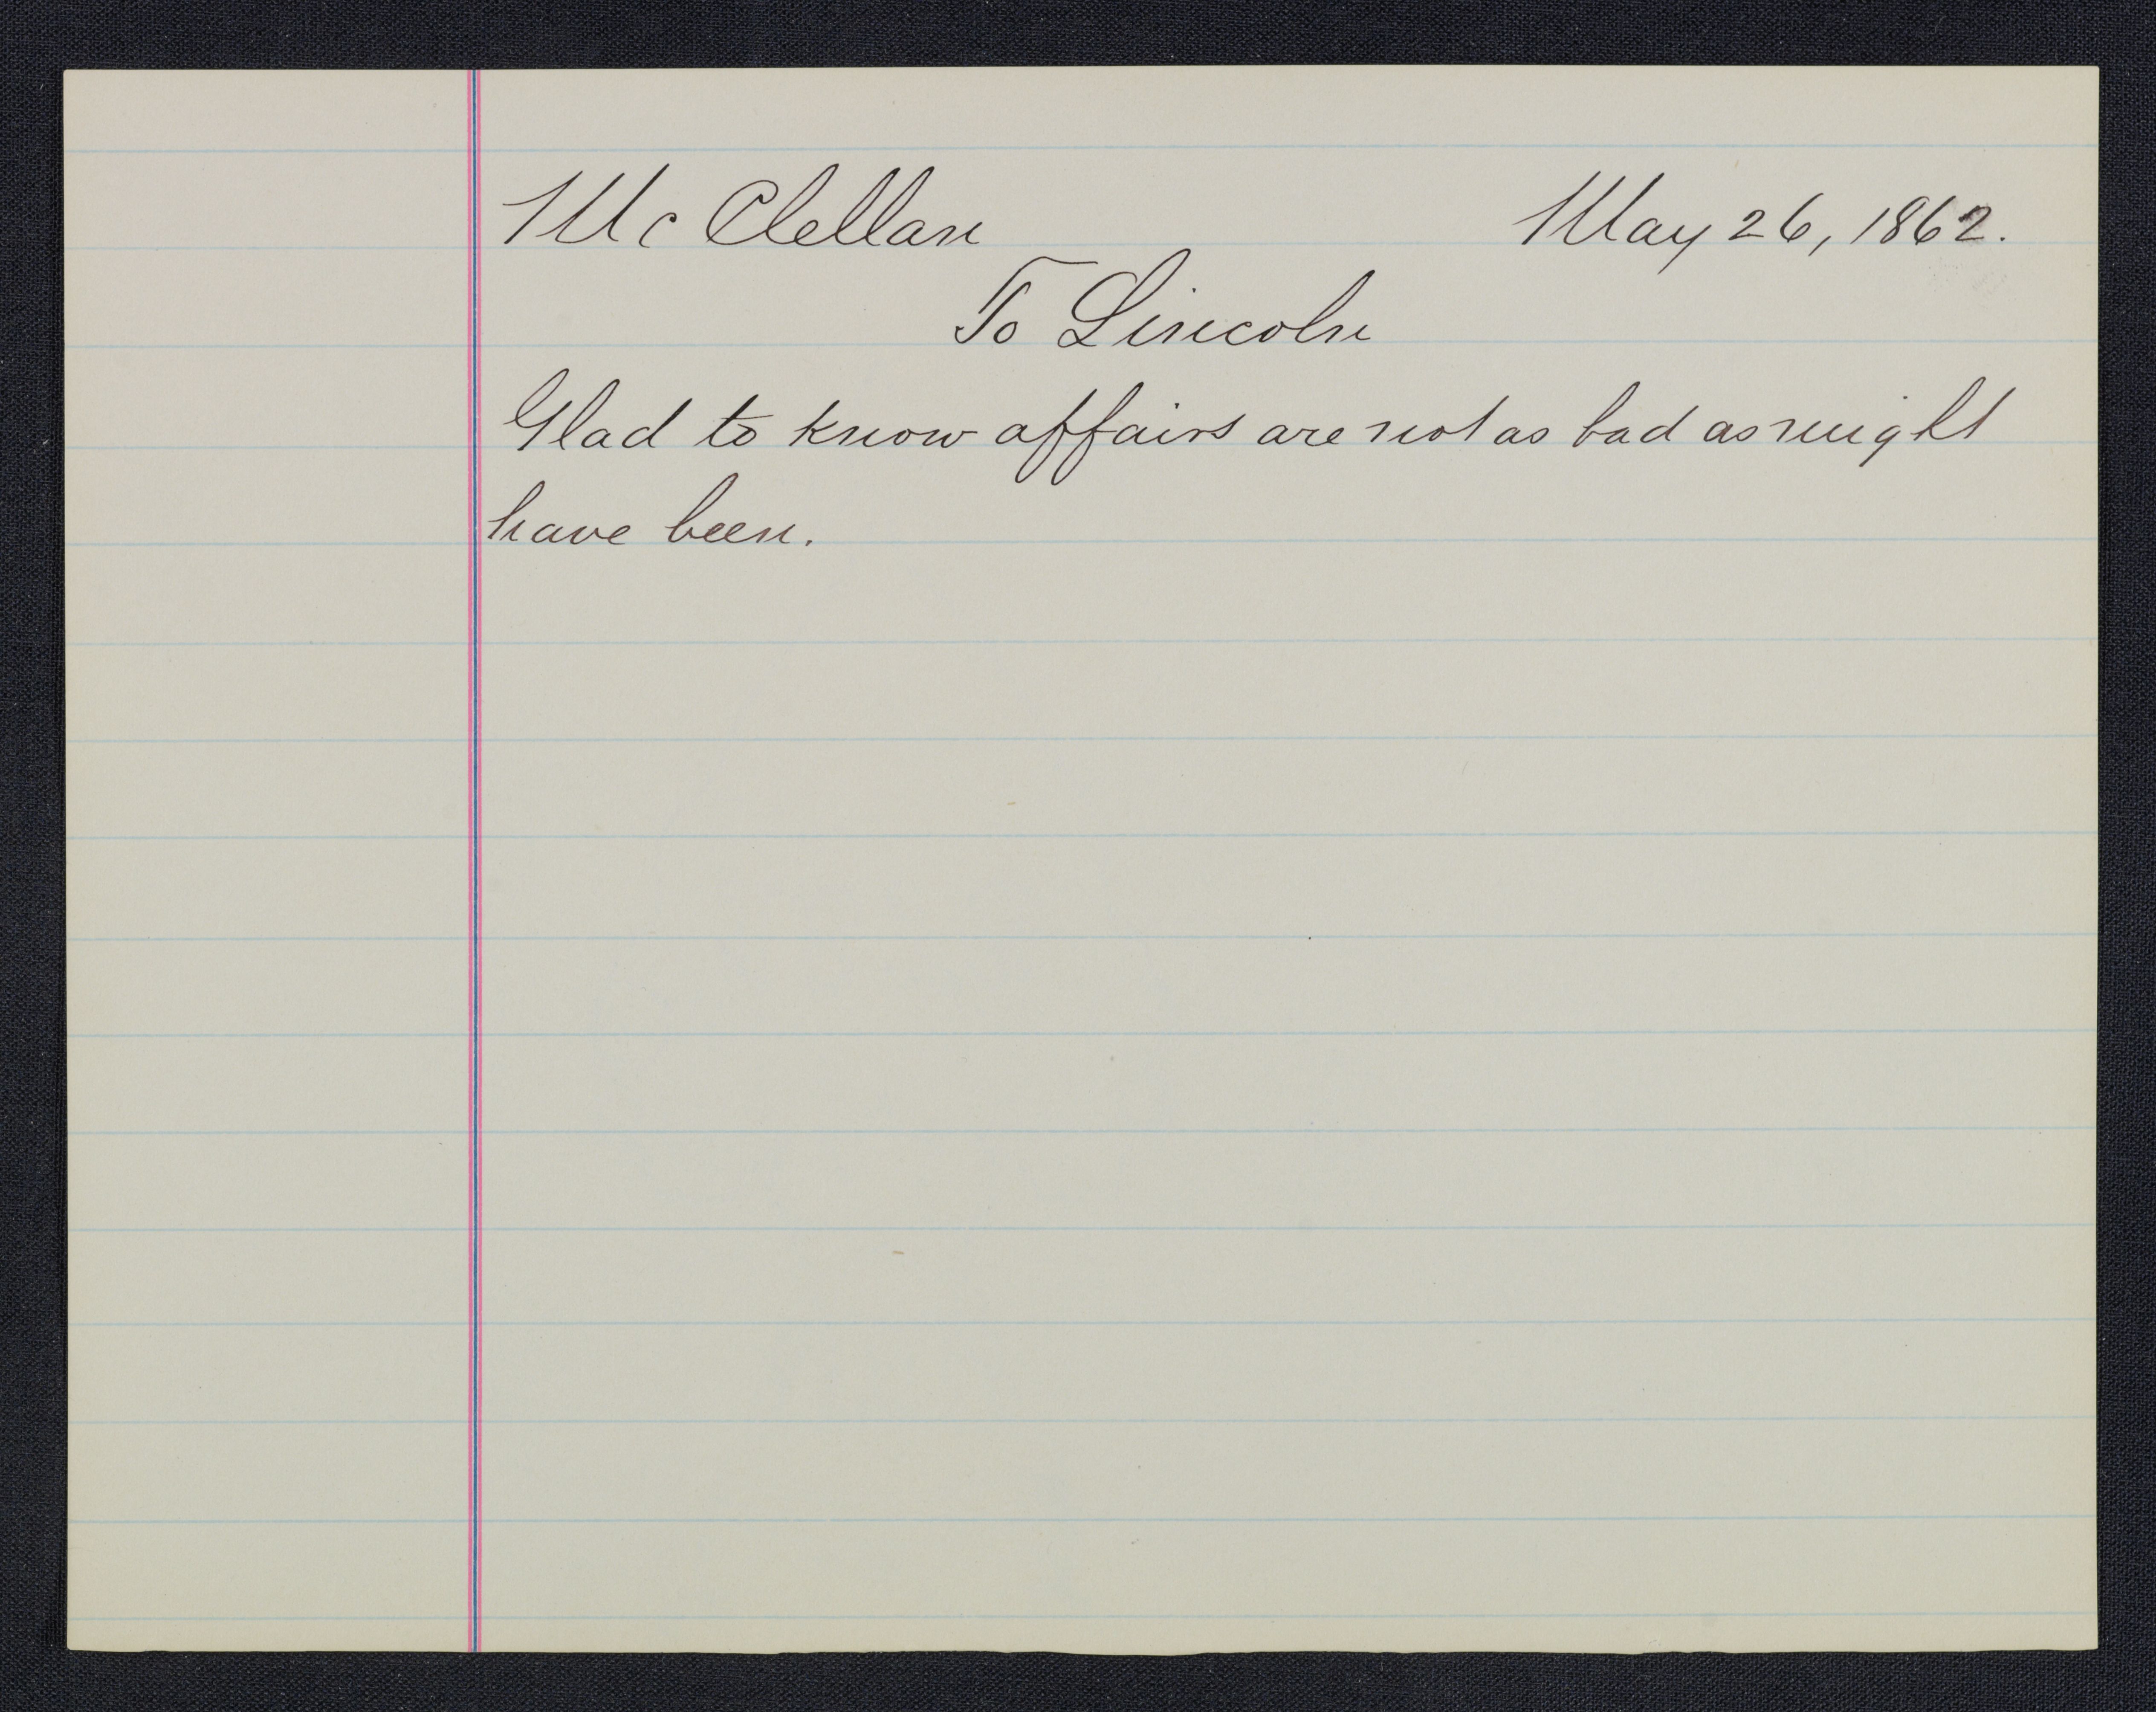 Mc Clellan May 26, 1862.
To Lincoln
Glad to know affairs are not as bad as might
have been.